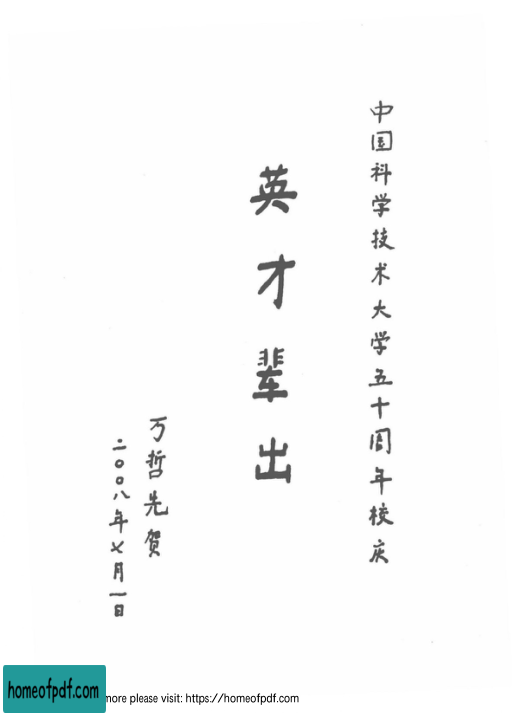 中国科学技术大学五十周年校庆
英才辈出
万哲先贺
二〇〇八年七月一日
homeofpdf.com
more please visit: https://homeofpdf.com